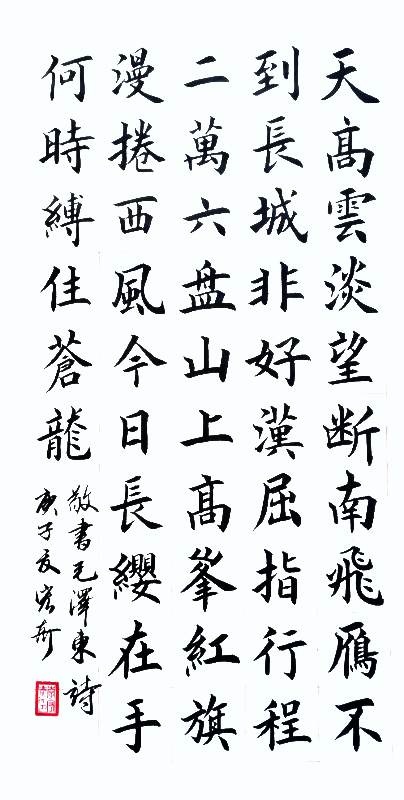 天髙雲淡望断南飛鴈不
到長城非好漢屈指行程
二萬六盘山上髙峯紅旗
漫捲西風今日長纓在手
何時縛住蒼龍
敬書毛澤東詩
庚子夏